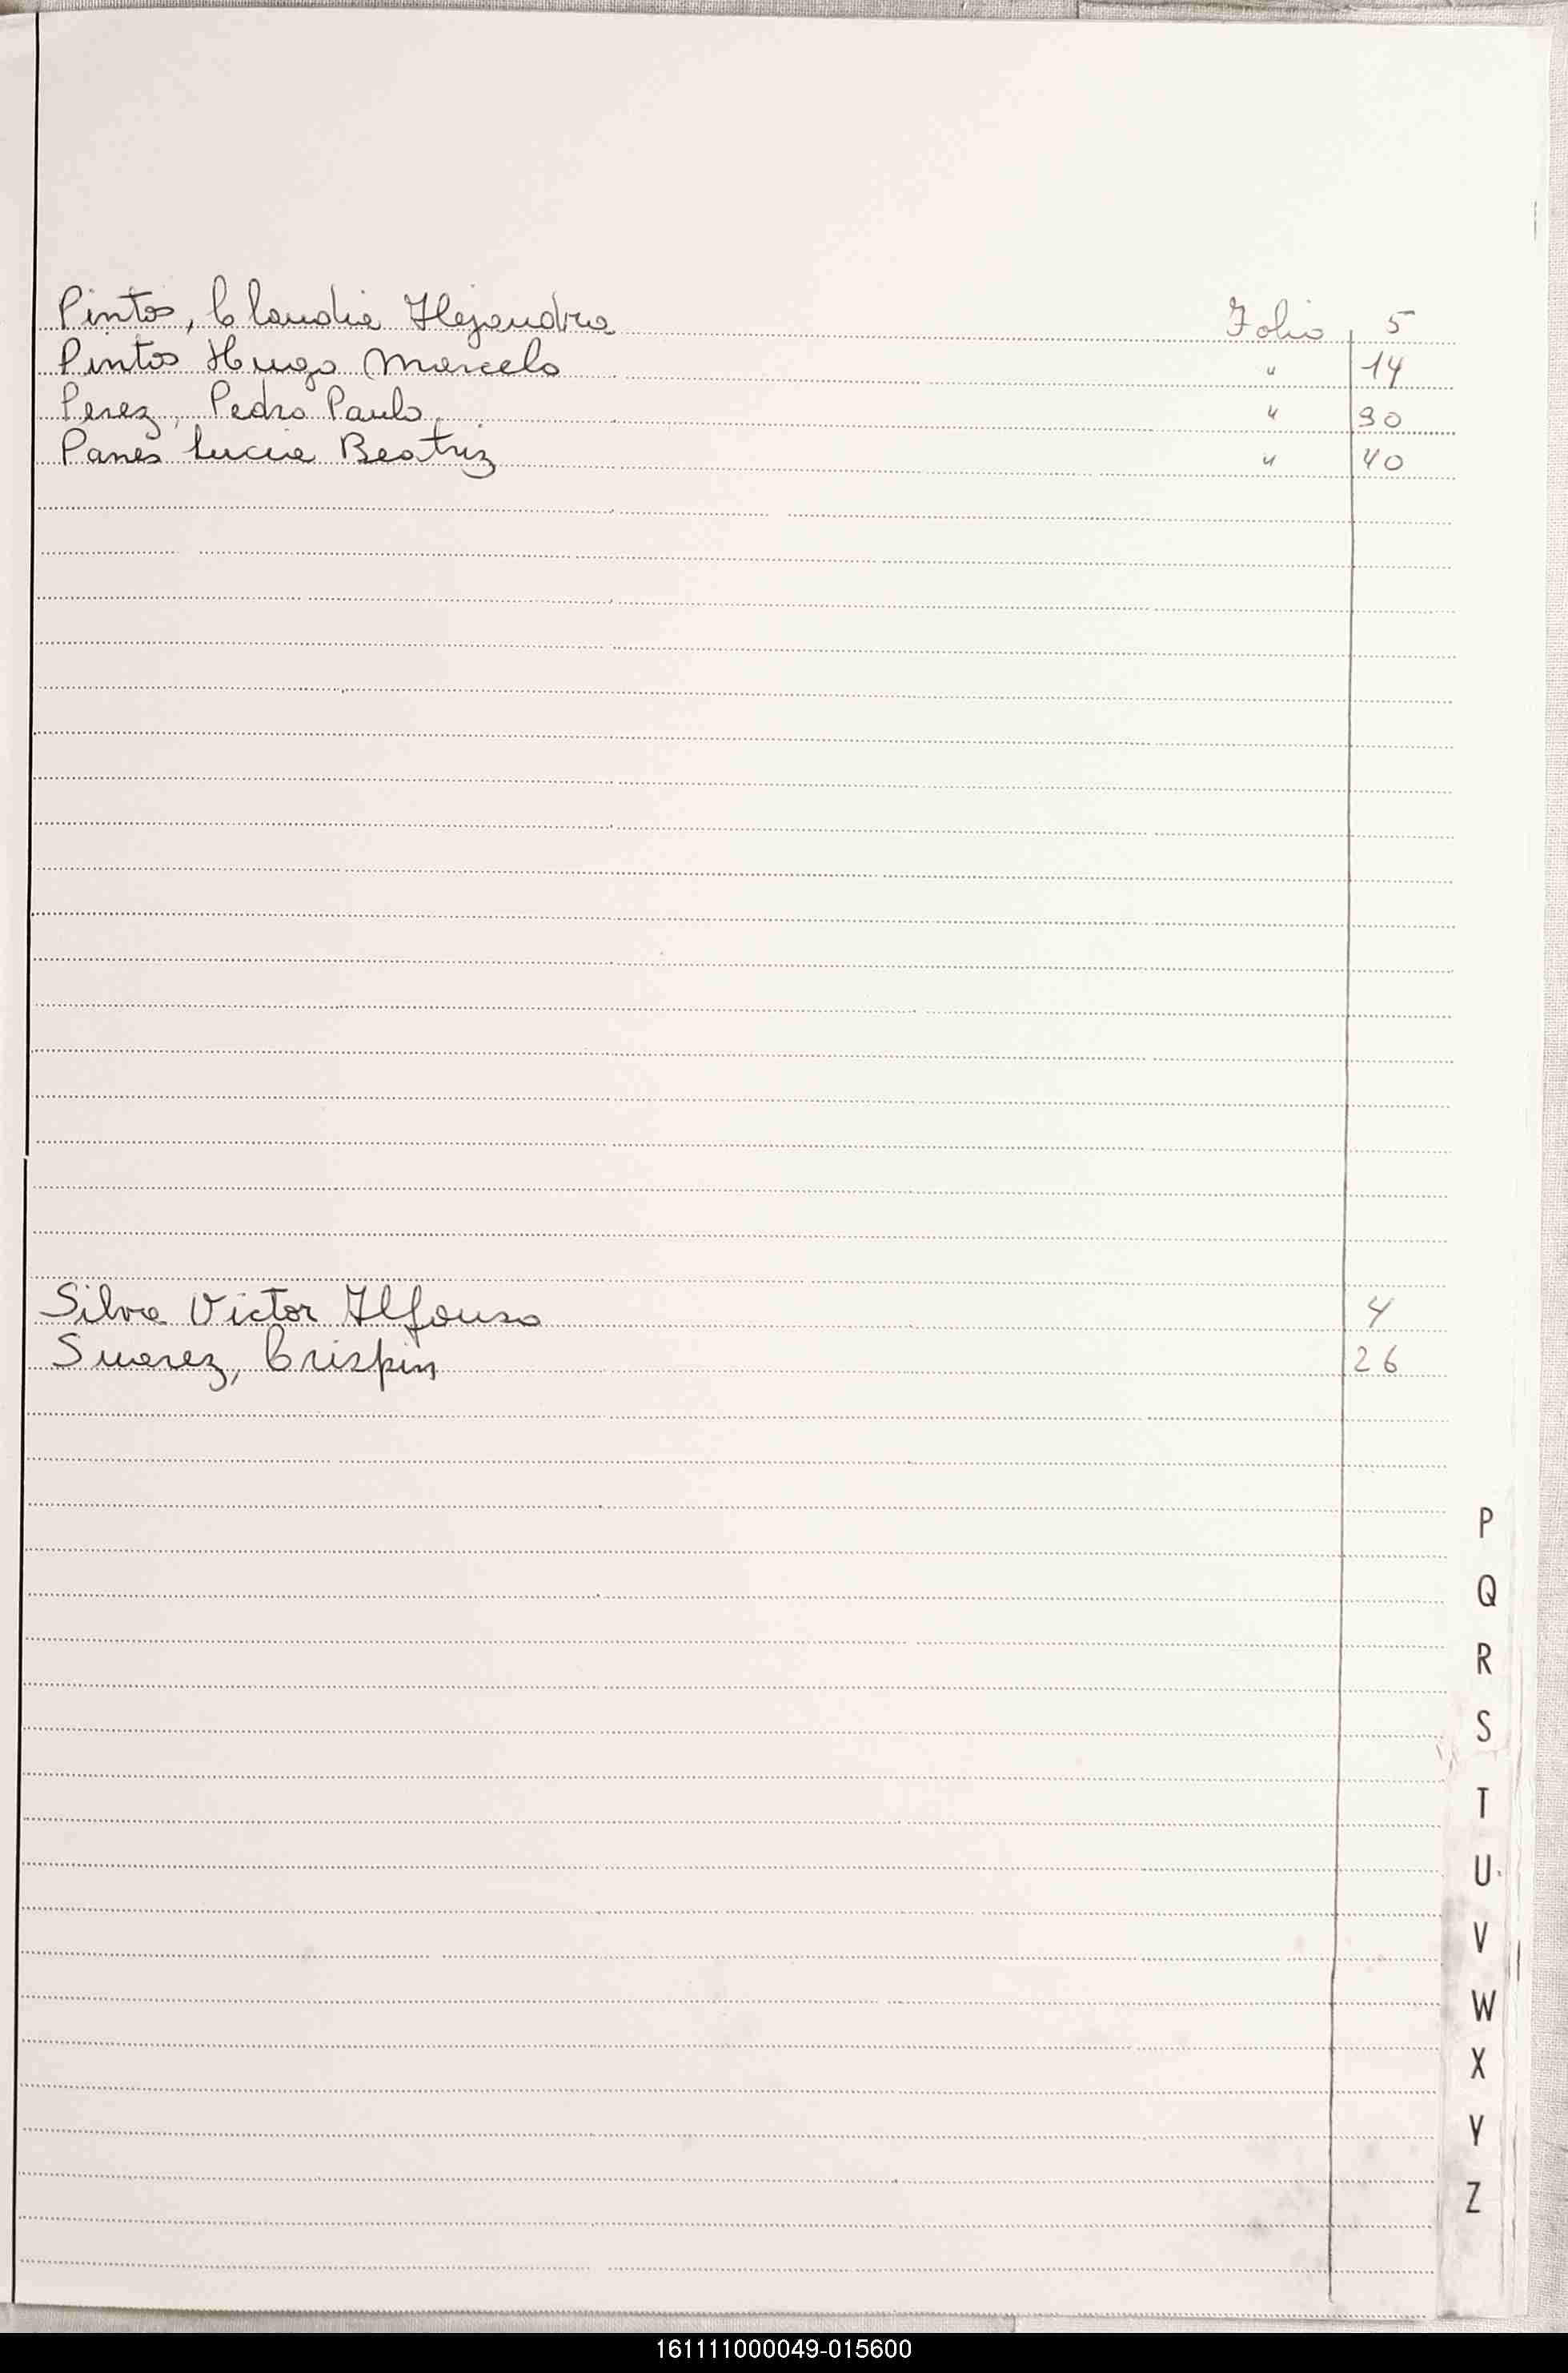 Pintos, Claudia Alejandra Folio 5
Pintos Hugo Marcelo " 14
Perez, Pedro Paulo " 30
Panes Lucia Beatriz " 40
Silva Victor Alfonso 4
Suarez, Crispin 26
P
Q
R
S
T
U
V
W
X
Y
Z
161111000049-015600